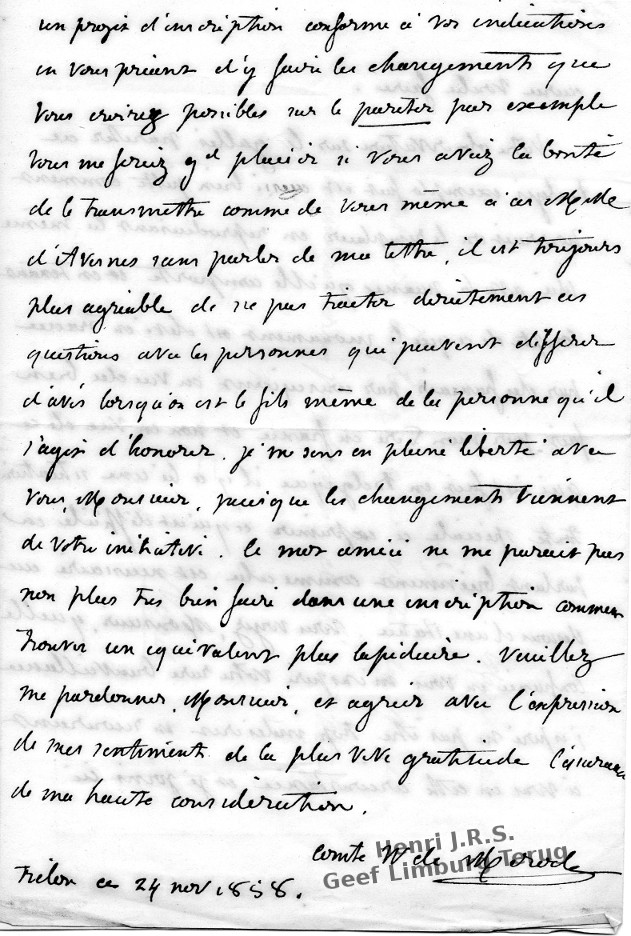 un projet d'inscription conforme à vos indications
en vous priant d'y faire les changements que
vous croirez possibles sur le pariter par exemple
vous me feriez gd plaisir si vous aviez la bonté
de le transmettre comme de vous même à ces
d'Avernes sans parler de ma lettre, il est toujours
plus agréable de ne pas traiter directement ces
questions avec les personnes qui peuvent différer
d'avis lorsqu'on est le fils même de la personne qu'il
s'agit d'honorer. je me sens en pleine liberté avec
vous, Monsieur, puisque les changements viennent
de votre initiative. le mot amici ne me parait pas
non plus très bien faire dans une inscription comment
trouver un équivalent plus lapidaire. Veuillez
me pardonner, Monsieur, et agréer avec l'expression
de mes sentiments de la plus vive gratitude l'assurance
de ma haute considération.
comte W de Merode
Trélon ce 24 nov 1858.
Henri J.R.S.
Geef Limburg Terug